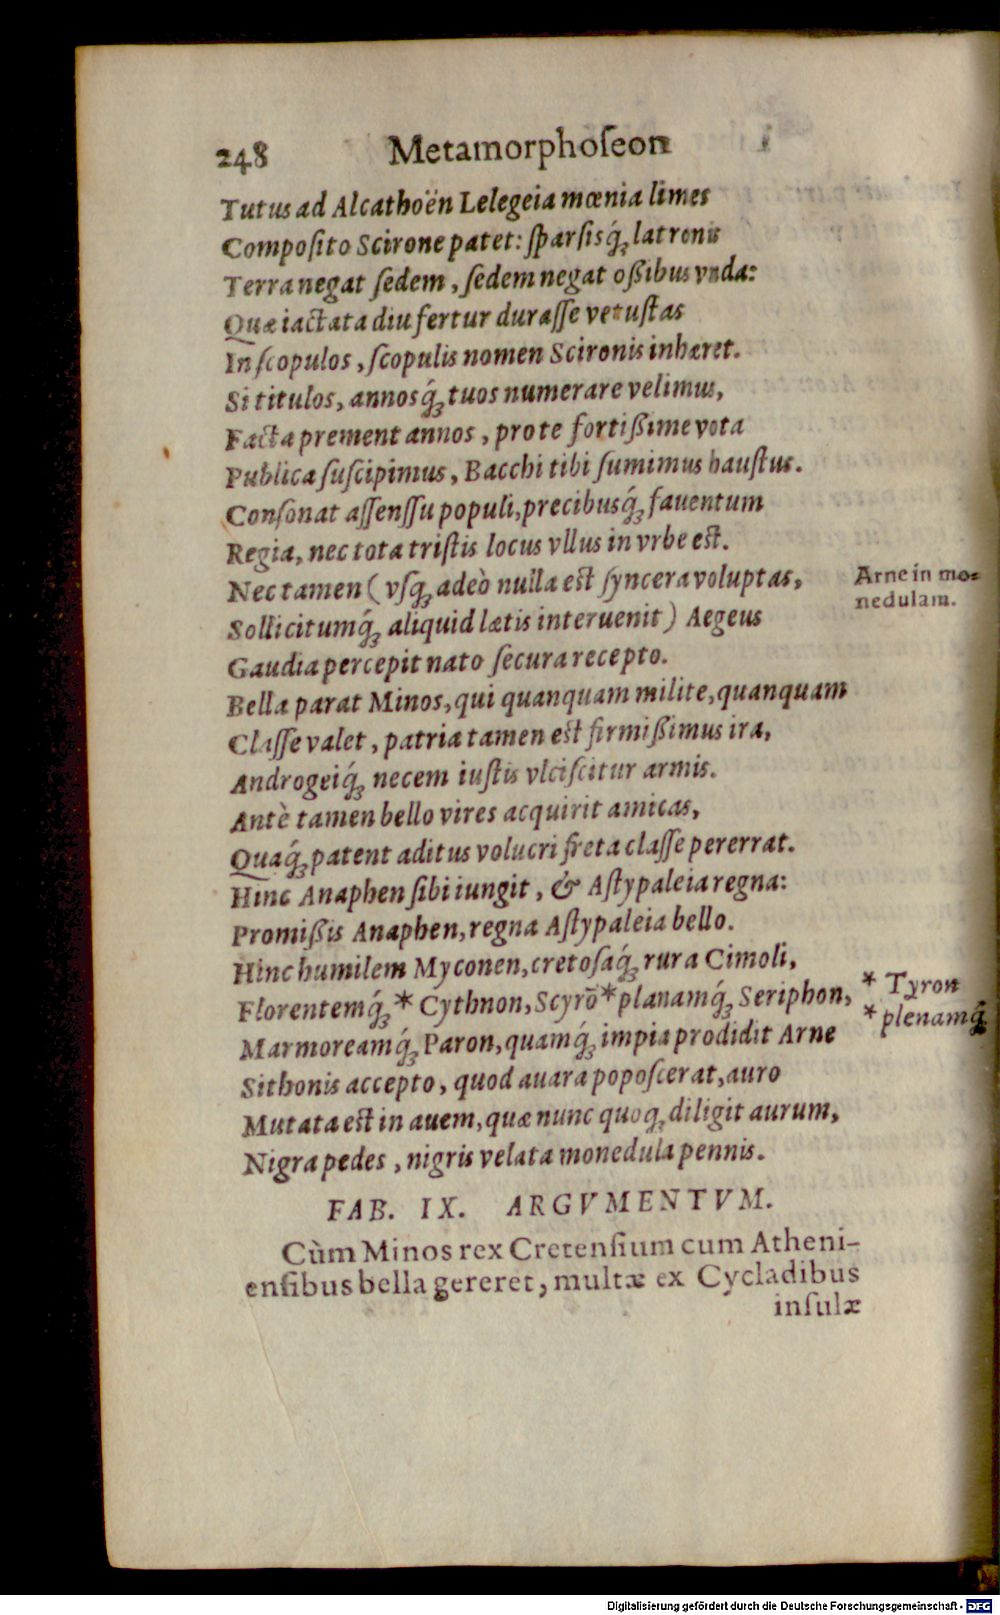 248 Metamorphoſeon
Tutus ad Alcathoën Lelegeia mœnia limes
Compoſito Scirone patet: ſparſisq́ꝫ latronis
Terra negat ſedem, ſedem negat oßibus vnda:
Quæ iactata diu fertur duraſſe vetuſtas
In ſcopulos, ſcopulis nomen Scironis inhæret.
Si titulos, annosq́ꝫ tuos numerare velimus,
Facta prement annos, pro te fortißime vota
Publica ſuſcipimus, Bacchi tibi ſumimus hauſtus.
Conſonat aſſenſſu populi, precibusq́ꝫ fauentum
Regia, nec tota triſtis locus vllus in vrbe est.
Nec tamen (vſqꝫ adeò nulla est ſyncera voluptas,
Arne in mo=
nedulam.
Sollicitumq́ꝫ aliquid lætis interuenit) Aegeus
Gaudia percepit nato ſecura recepto.
Bella parat Minos, qui quanquam milite, quanquam
Claſſe valet, patria tamen est firmißimus ira,
Androgeiq́ꝫ necem iuſtis vlciſcitur armis.
Antè tamen bello vires acquirit amicas,
Quaq́ꝫ patent aditus volucri freta claſſe pererrat.
Hinc Anaphen ſibi iungit, & Aſtypaleia regna:
Promißis Anaphen, regna Aſtypaleia bello.
Hinc humilem Myconen, cretoſaq́ꝫ rura Cimoli,
Florentemq́ꝫ * Cythnon, Scyrō * planamq́ꝫ Seriphon,
* Tyron
* plenamq́ꝫ
Marmoreamq́ꝫ Paron, quamq́ꝫ impia prodidit Arne
Sithonis accepto, quod auara popoſcerat, auro
Mutata est in auem, quæ nunc quoqꝫ diligit aurum,
Nigra pedes, nigris velata monedula pennis.
FAB. IX. ARGVMENTVM.
Cùm Minos rex Cretenſium cum Atheni-
enſibus bella gereret, multæ ex Cycladibus
inſulæ
Digitalisierung gefördert durch die Deutsche Forschungsgemeinschaft - DFG